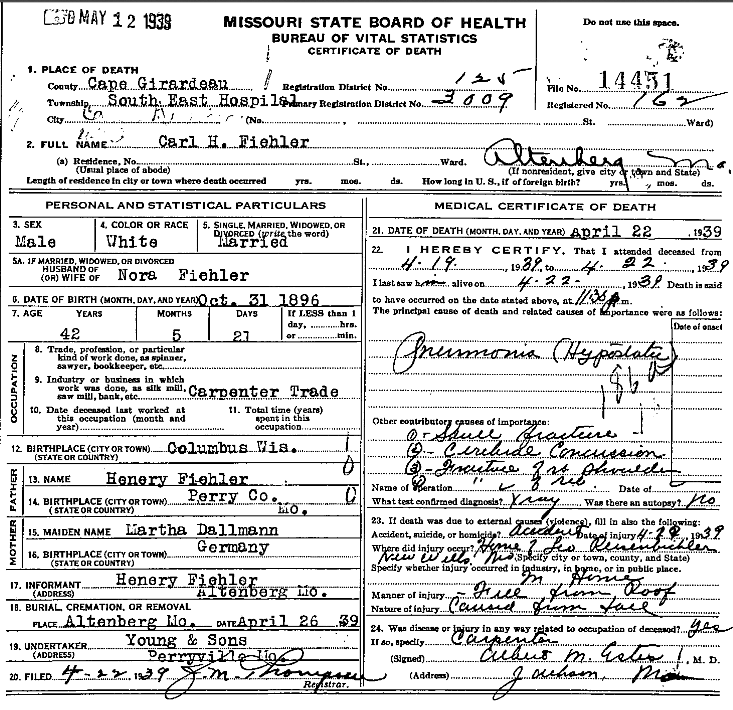 MAY 12 1939
MISSOURI STATE BOARD OF HEALTH
BUREAU OF VITAL STATISTICS
CERTIFICATE OF DEATH
Do not use this space.
1. PLACE OF DEATH
County Cape Girardeau
Registration District No. 125
File No. 14451
Township South East Hospital
Primary Registration District No. 3009
Registered No. 162
City (No. St. Ward)
2. FULL NAME Carl H. Fiehler
(a) Residence, No. St., Ward. Altenberg Mo.
(Usual place of abode)
(If nonresident, give city or town and State)
Length of residence in city or town where death occurred yrs. mos. ds. How long in U. S., if of foreign birth? yrs. mos. ds.
PERSONAL AND STATISTICAL PARTICULARS
3. SEX
Male
4. COLOR OR RACE
White
5. SINGLE, MARRIED, WIDOWED, OR DIVORCED (write the word)
Married
5A. IF MARRIED, WIDOWED, OR DIVORCED
HUSBAND OF
(OR) WIFE OF Nora Fiehler
6. DATE OF BIRTH (MONTH, DAY, AND YEAR) Oct. 31 1896
7. AGE YEARS MONTHS DAYS If LESS than 1
day, hrs.
42 5 21 or min.
OCCUPATION
8. Trade, profession, or particular
kind of work done, as spinner,
sawyer, bookkeeper, etc.
9. Industry or business in which
work was done, as silk mill,
saw mill, bank, etc. Carpenter Trade
10. Date deceased last worked at
this occupation (month and
year)
11. Total time (years)
spent in this
occupation
12. BIRTHPLACE (CITY OR TOWN) Columbus Wis.
(STATE OR COUNTRY)
FATHER
13. NAME Henery Fiehler
14. BIRTHPLACE (CITY OR TOWN) Perry Co.
(STATE OR COUNTRY) Mo.
MOTHER
15. MAIDEN NAME Martha Dallmann
16. BIRTHPLACE (CITY OR TOWN) Germany
(STATE OR COUNTRY)
17. INFORMANT Henery Fiehler
(ADDRESS) Altenberg Mo.
18. BURIAL, CREMATION, OR REMOVAL
PLACE Altenberg Mo. DATE April 26 39
19. UNDERTAKER Young & Sons
(ADDRESS) Perryville Mo.
20. FILED 4-22 1939 J. M. Thompson
Registrar.
MEDICAL CERTIFICATE OF DEATH
21. DATE OF DEATH (MONTH, DAY, AND YEAR) april 22, 1939
22. I HEREBY CERTIFY, That I attended deceased from
4-19, 1939, to 4-22, 1939
I last saw him alive on 4-22, 1939. Death is said
to have occurred on the date stated above, at m.
The principal cause of death and related causes of importance were as follows:
Date of onset
Pneumonia (Hypostatic)
Other contributory causes of importance:
1- Skull fracture
2- Cerebral Concussion
3- Fracture of rt shoulder
" " rib
Name of operation Date of
What test confirmed diagnosis? Xray Was there an autopsy? no
23. If death was due to external causes (violence), fill in also the following:
Accident, suicide, or homicide? Accident Date of injury 1939
Where did injury occur? Home of
New Wells, Mo. (Specify city or town, county, and State)
Specify whether injury occurred in industry, in home, or in public place.
Home
Manner of injury from Roof
Nature of injury Caused from fall
24. Was disease or injury in any way related to occupation of deceased? yes
If so, specify Carpenter
(Signed) Albert M. Estes, M. D.
(Address) Jackson, Mo